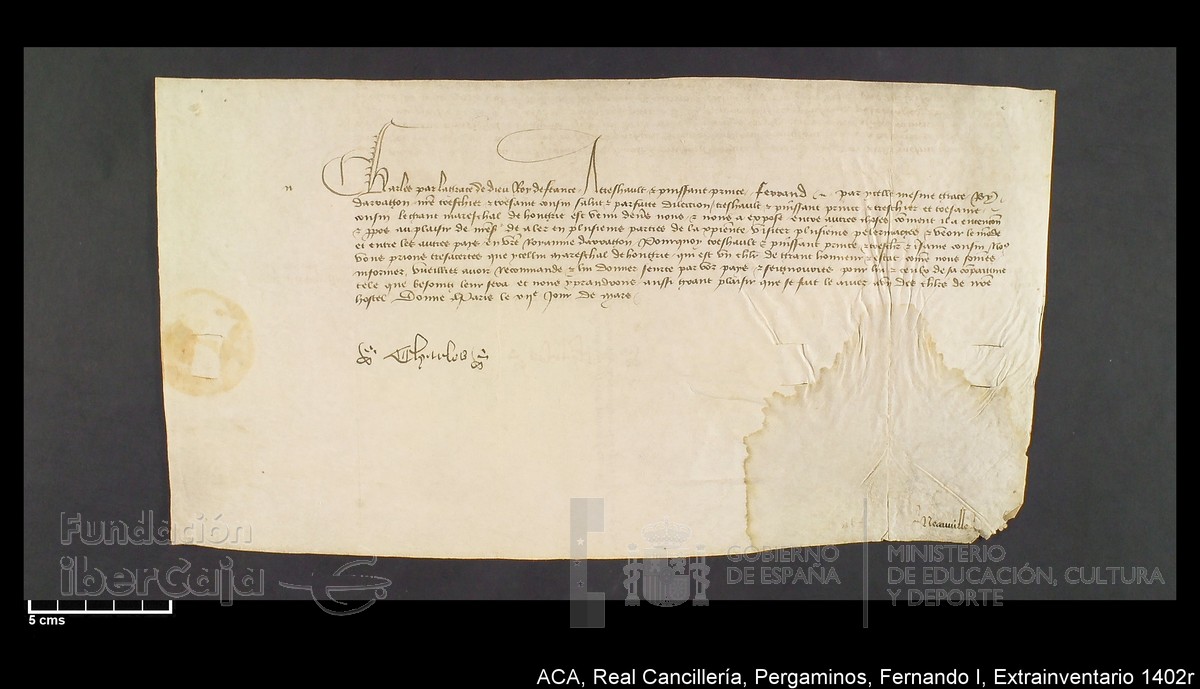 Charles par la grace de dieu Roy de france. A treshault & puissant prince ferrand par ycelle mesme grace Roy
darragon nre treschier & tresamé cousin salut & parfaitte dilection treshault & puissant prince & treschier et tresamé
cousin le grant mareschal de hongrie est venu devs nous & nous a exposé entre autres choses coment il a entencion
& ppos au plaisir de nres de aler en plusieurs parties de la xpienté visiter plusieurs pelerinages & veoir le monde
et entre les autres pays en vre Royaume darragon Pourquoy treshault & puissant prince & treschier & tsamé cousin No9
vous prions tresacertes que ycellui mareschal de hongrie qui est un chlr de grant honneur & estat come nous somes
informez, vueilliez avoir Recommandé & lui donner seurté par voz pays & seignouries pour lui & ceulx de sa compaignie
tele que besoing leur sera et nous y prandrons aussi grant plaisir que se fait le aviez a un des chlrs de nre
hostel Donné a Paris le viie jour de mars
Charles
Neauville
Fundación
iberCaja
GOBIERNO
DE ESPAÑA
MINISTERIO
DE EDUCACIÓN, CULTURA
Y DEPORTE
5 cms
ACA, Real Cancillería, Pergaminos, Fernando I, Extrainventario 1402r